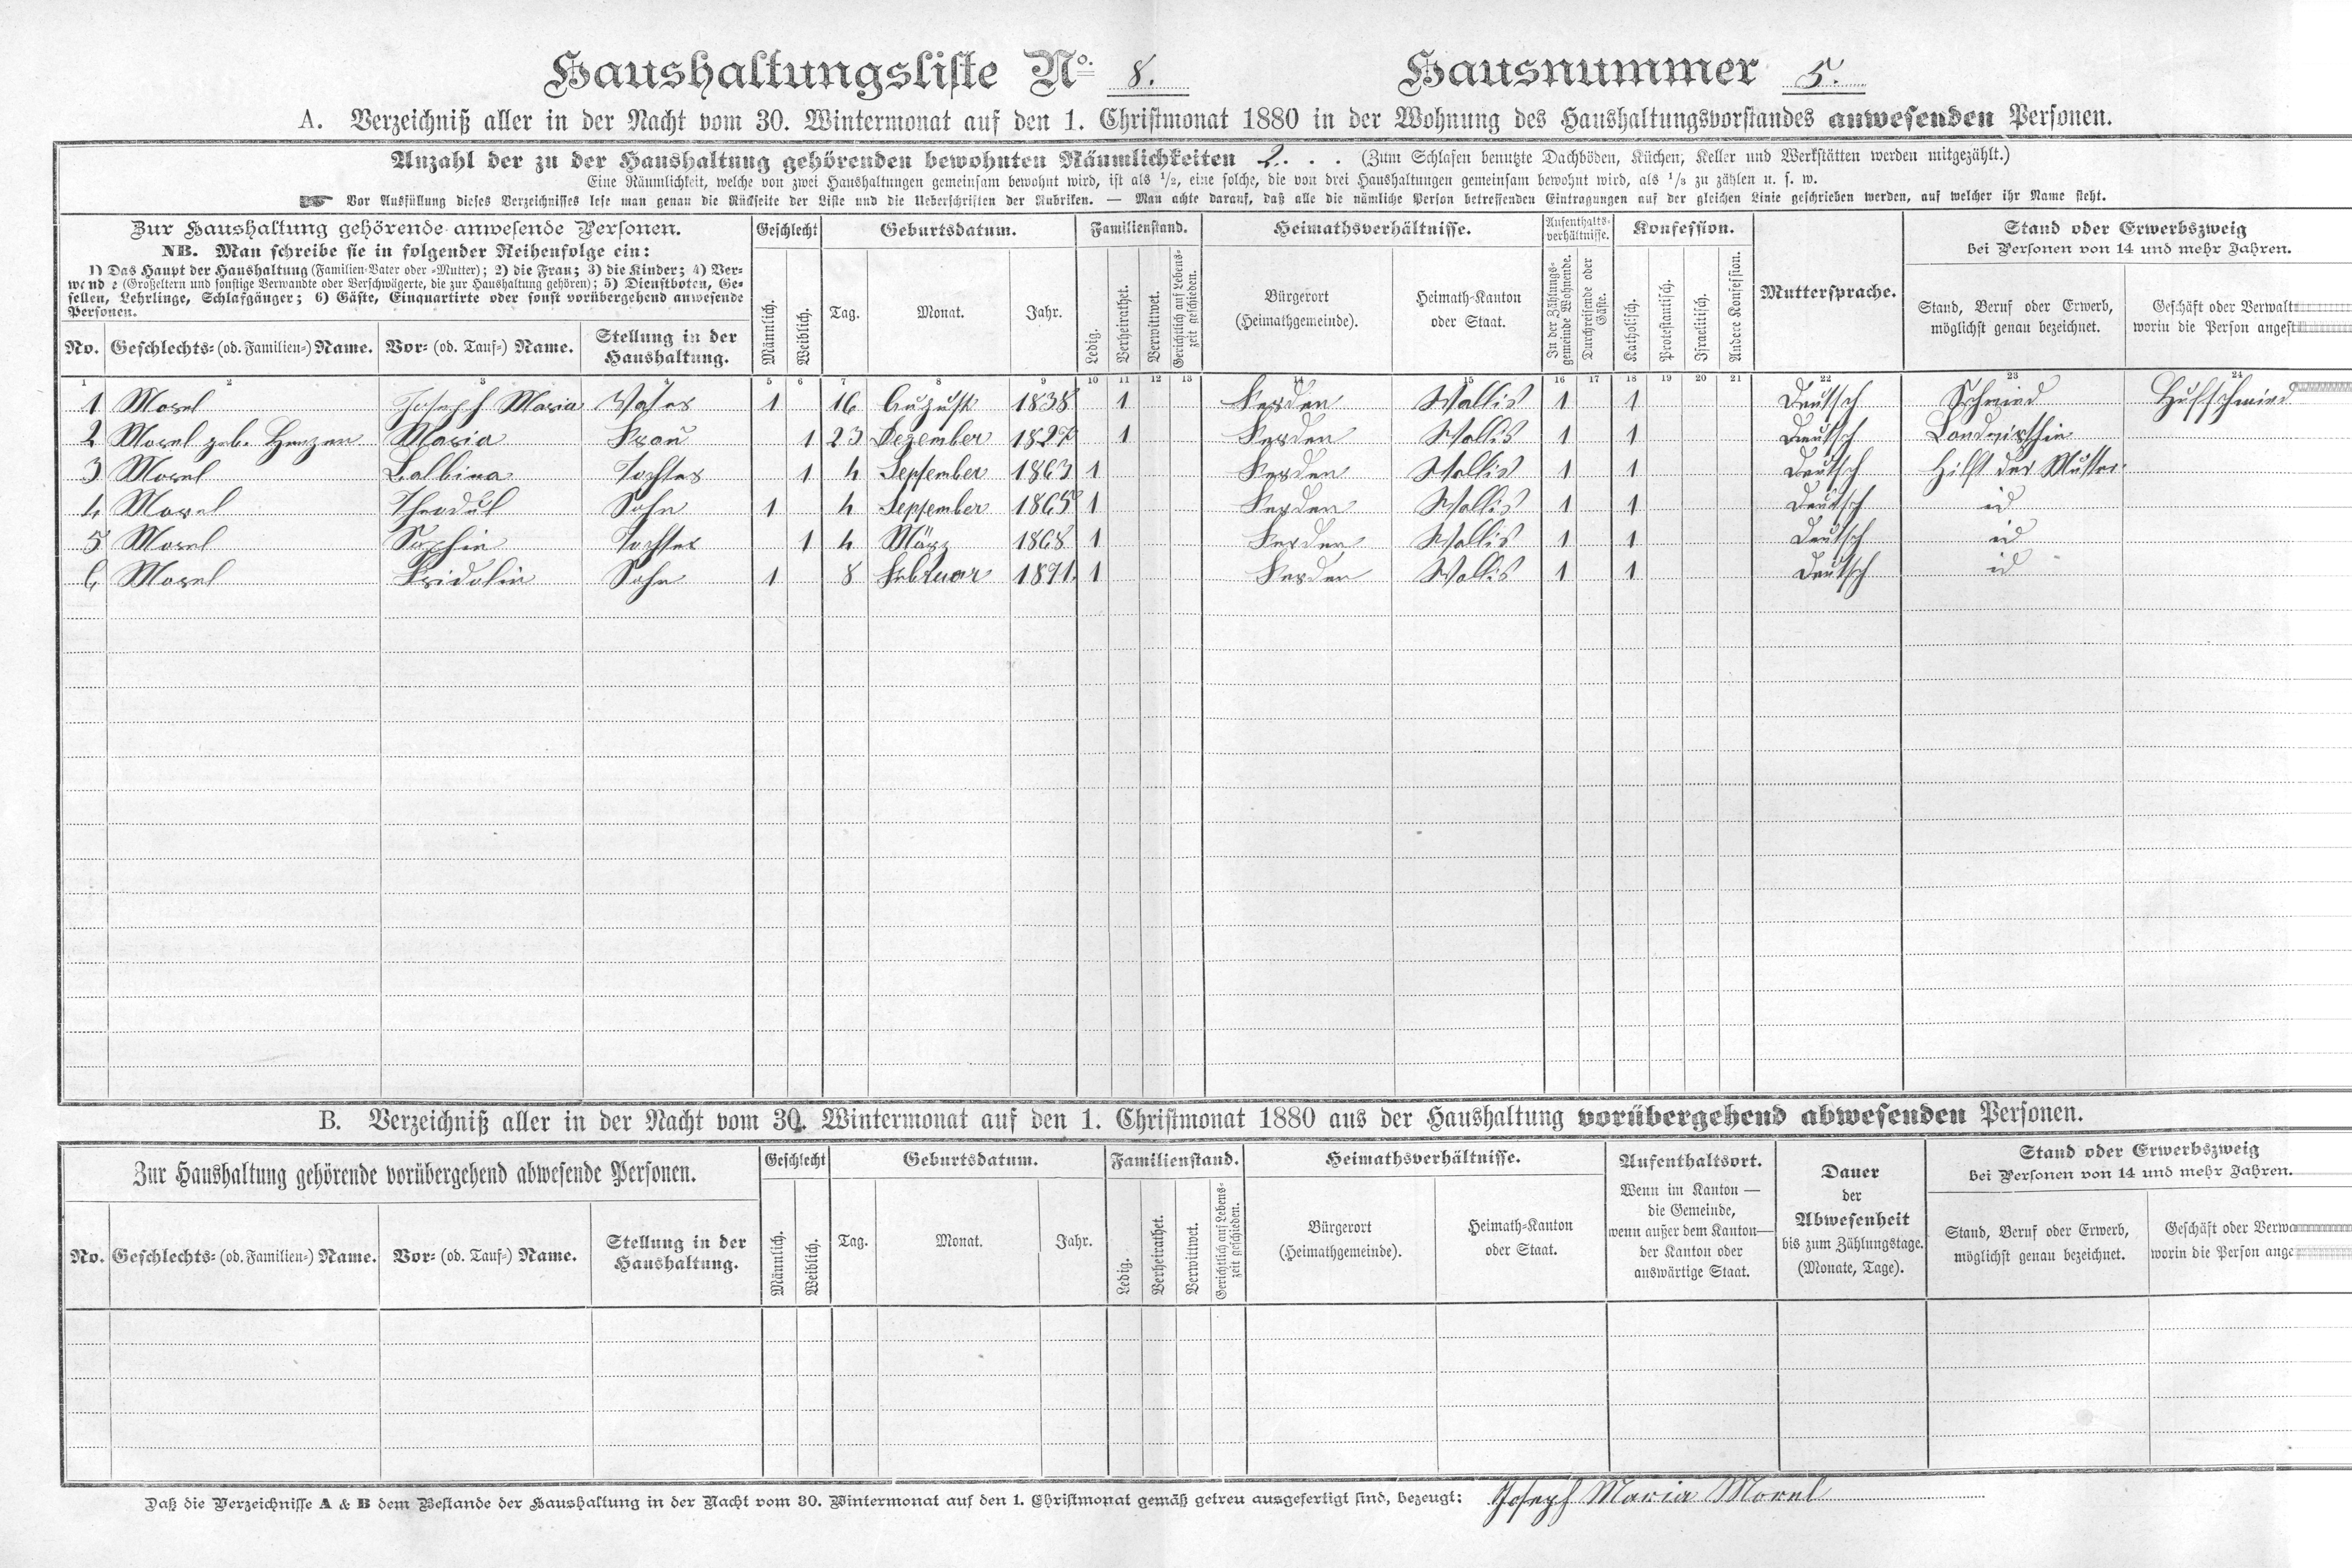 Haushaltungsliste No. 8. Hausnummer 5.
A. Verzeichniß aller in der Nacht vom 30. Wintermonat auf den 1. Christmonat 1880 in der Wohnung des Haushaltungsvorstandes anwesenden Personen.
Anzahl der zu der Haushaltung gehörenden bewohnten Räumlichkeiten 2. . . (Zum Schlafen benutzte Dachböden, Küchen, Keller und Werkstätten werden mitgezählt.)
Eine Räumlichkeit, welche von zwei Haushaltungen gemeinsam bewohnt wird, ist als 1/2, eine solche, die von drei Haushaltungen gemeinsam bewohnt wird, als 1/3 zu zählen u. s. w.
Vor Ausfüllung dieses Verzeichnisses lese man genau die Rückseite der Liste und die Ueberschriften der Rubriken. — Man achte darauf, daß alle die nämliche Person betreffenden Eintragungen auf der gleichen Linie geschrieben werden, auf welcher ihr Name steht.
Zur Haushaltung gehörende anwesende Personen.
NB. Man schreibe sie in folgender Reihenfolge ein:
1) Das Haupt der Haushaltung (Familien-Vater oder -Mutter); 2) die Frau; 3) die Kinder; 4) Ver-
wandte (Großeltern und sonstige Verwandte oder Verschwägerte, die zur Haushaltung gehören); 5) Dienstboten, Ge-
sellen, Lehrlinge, Schlafgänger; 6) Gäste, Einquartirte oder sonst vorübergehend anwesende
Personen.
No. Geschlechts- (od. Familien-) Name. Vor- (od. Tauf-) Name. Stellung in der
Haushaltung.
Geschlecht
Männlich. Weiblich.
Geburtsdatum.
Tag. Monat. Jahr.
Familienstand.
Ledig. Verheirathet. Verwittwet. Gerichtlich auf Lebens-
zeit geschieden.
Heimathsverhältnisse.
Bürgerort
(Heimathgemeinde).
Heimath-Kanton
oder Staat.
Aufenthalts-
verhältnisse.
In der Zählungs-
gemeinde Wohnende.
Durchreisende oder
Gäste.
Konfession.
Katholisch. Protestantisch. Israelitisch. Andere Konfession.
Muttersprache.
Stand oder Erwerbszweig
bei Personen von 14 und mehr Jahren.
Stand, Beruf oder Erwerb,
möglichst genau bezeichnet.
Geschäft oder Verwalt
worin die Person angest
1 2 3 4 5 6 7 8 9 10 11 12 13 14 15 16 17 18 19 20 21 22 23 24
1 Morel Joseph Maria Vater 1 16 August 1838 1 Ferden Wallis 1 1 Deutsch Schmied Hufschmied
2 Morel geb. Henzen Maria Frau 1 23 Dezember 1827 1 Ferden Wallis 1 1 Deutsch Landwirthin
3 Morel Balbina Tochter 1 4 September 1863 1 Ferden Wallis 1 1 Deutsch Hilft der Mutter
4 Morel Theodul Sohn 1 4 September 1865 1 Ferden Wallis 1 1 Deutsch id
5 Morel Sophie Tochter 1 4 März 1868 1 Ferden Wallis 1 1 Deutsch id
6 Morel Fridolin Sohn 1 8 Februar 1871. 1 Ferden Wallis 1 1 Deutsch id
B. Verzeichniß aller in der Nacht vom 30. Wintermonat auf den 1. Christmonat 1880 aus der Haushaltung vorübergehend abwesenden Personen.
Zur Haushaltung gehörende vorübergehend abwesende Personen.
No. Geschlechts- (od. Familien-) Name. Vor- (od. Tauf-) Name. Stellung in der
Haushaltung.
Geschlecht
Männlich. Weiblich.
Geburtsdatum.
Tag. Monat. Jahr.
Familienstand.
Ledig. Verheirathet. Verwittwet. Gerichtlich auf Lebens-
zeit geschieden.
Heimathsverhältnisse.
Bürgerort
(Heimathgemeinde).
Heimath-Kanton
oder Staat.
Aufenthaltsort.
Wenn im Kanton —
die Gemeinde,
wenn außer dem Kanton—
der Kanton oder
auswärtige Staat.
Dauer
der
Abwesenheit
bis zum Zählungstage.
(Monate, Tage).
Stand oder Erwerbszweig
bei Personen von 14 und mehr Jahren.
Stand, Beruf oder Erwerb,
möglichst genau bezeichnet.
Geschäft oder Verwa
worin die Person ange
Daß die Verzeichnisse A & B dem Bestande der Haushaltung in der Nacht vom 30. Wintermonat auf den 1. Christmonat gemäß getreu ausgefertigt sind, bezeugt: Joseph Maria Morel